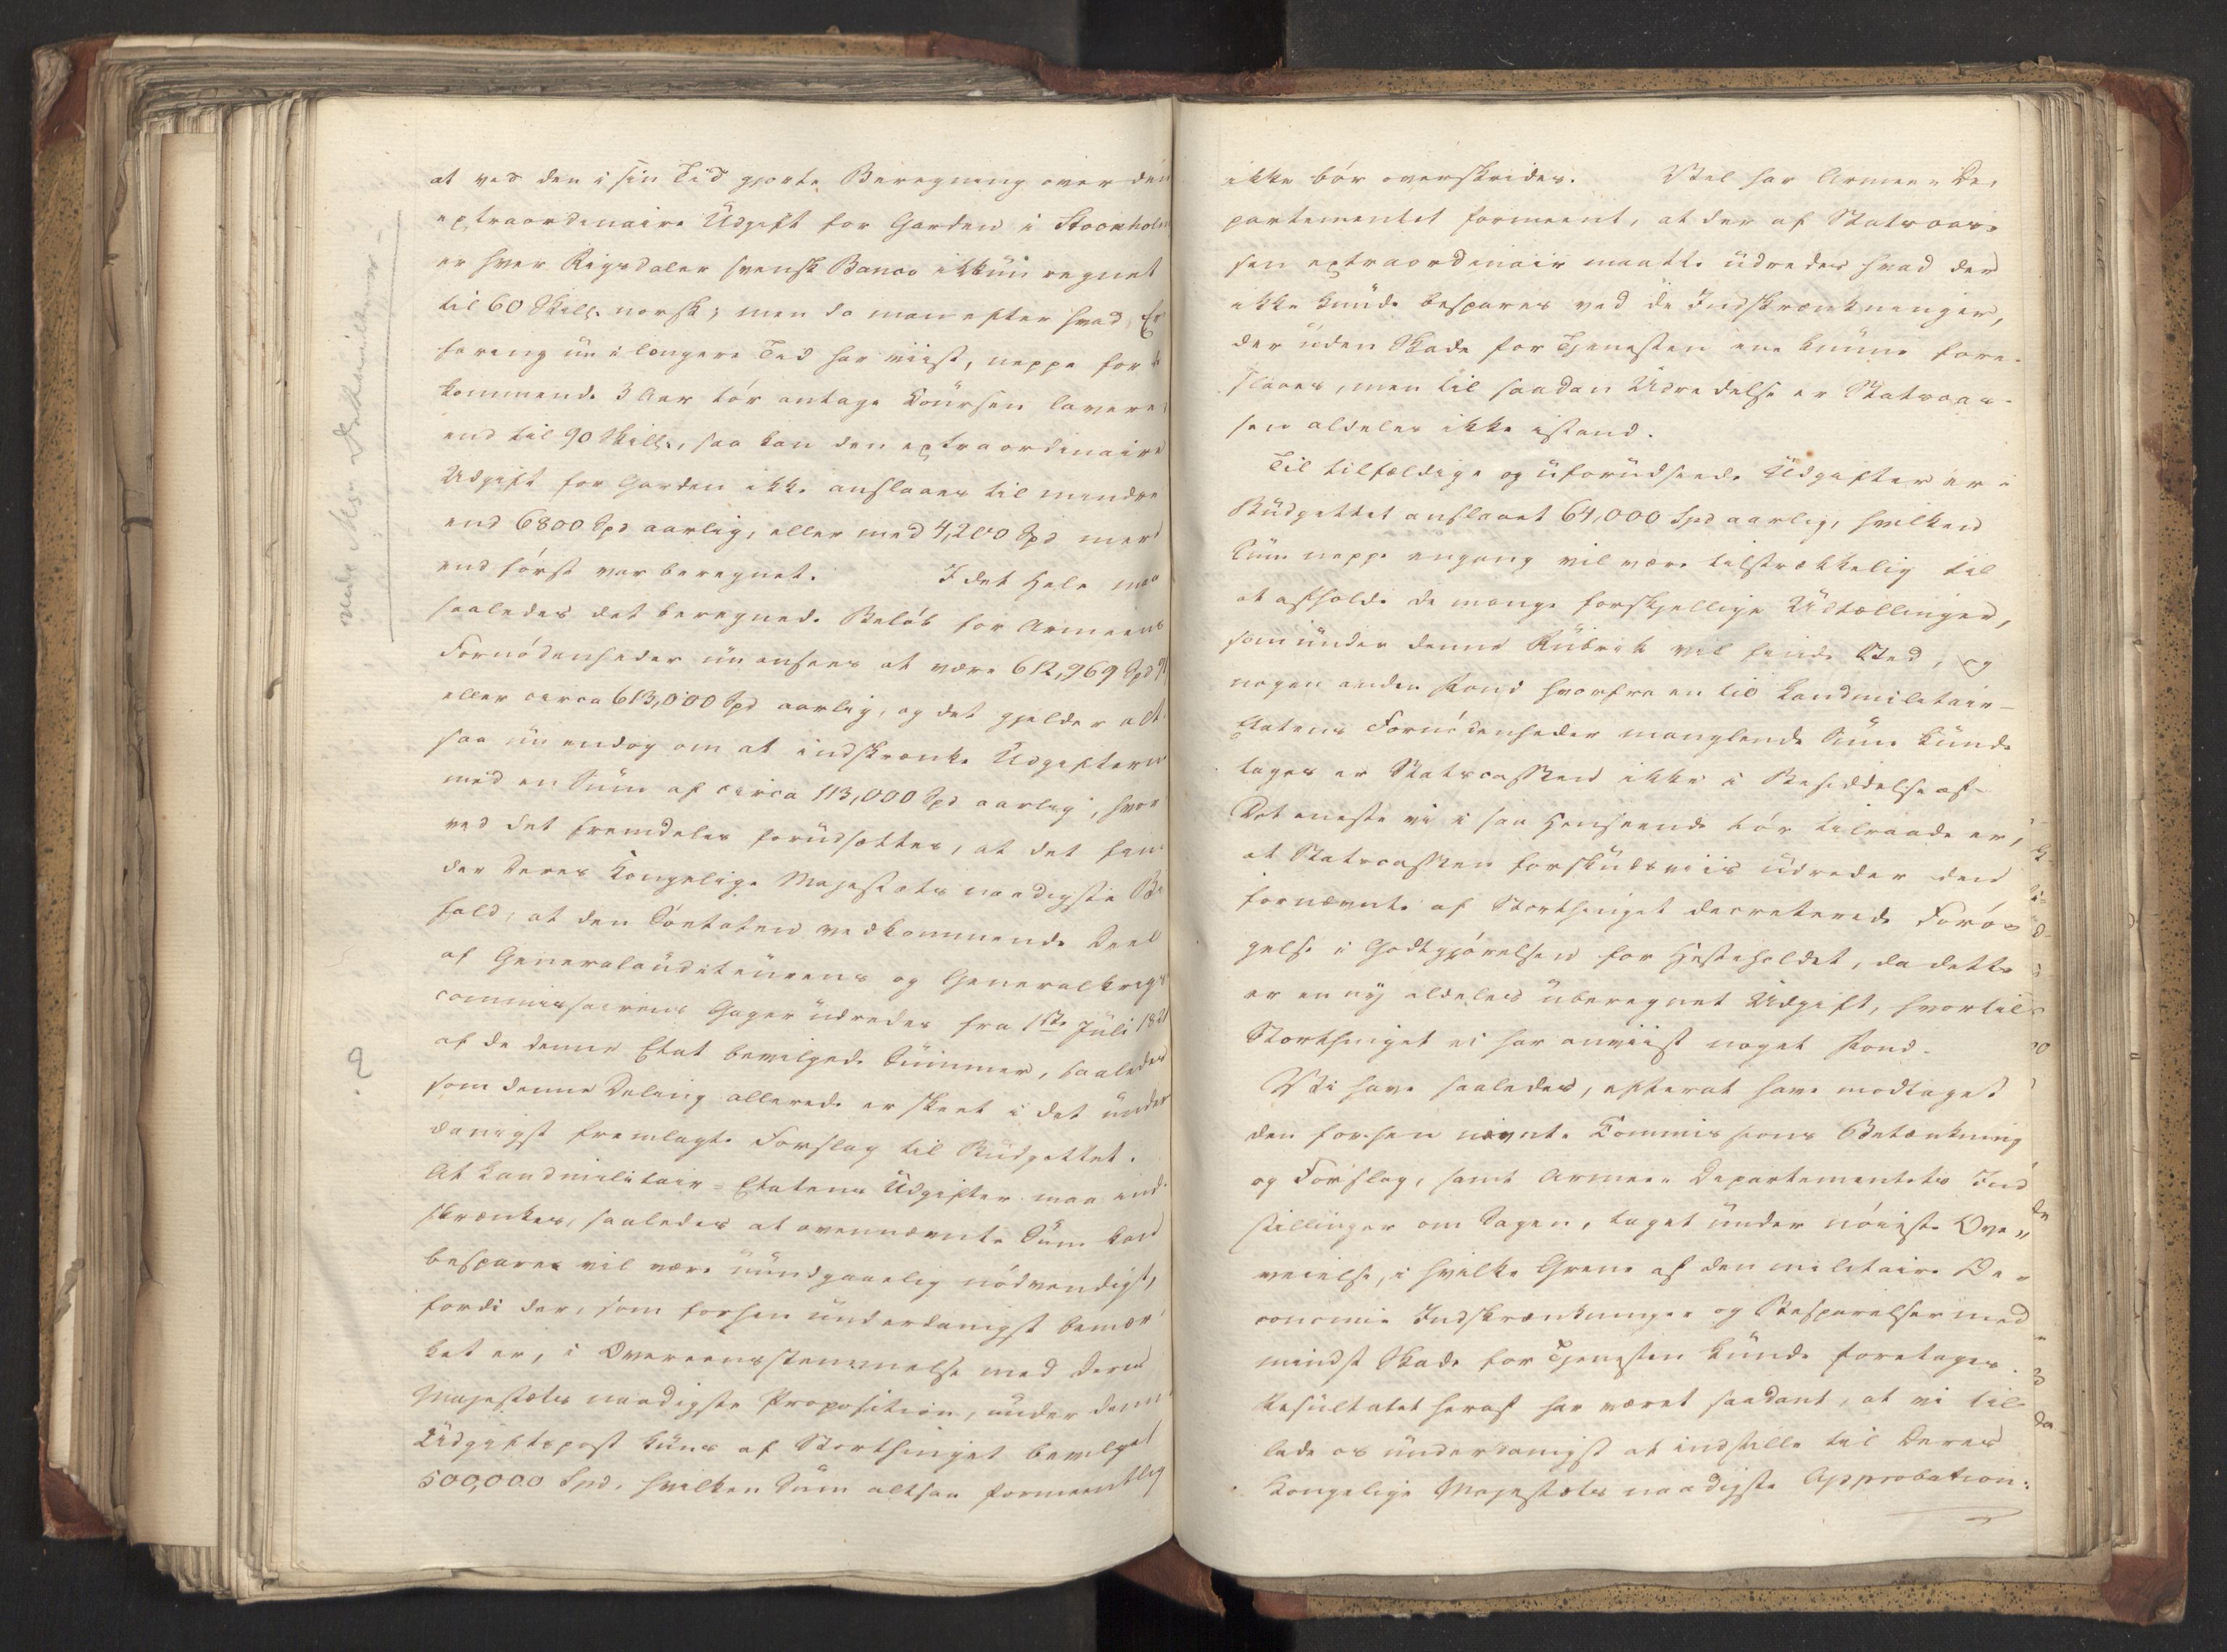 at ved den i sin Tid gjorte Beregning over den
extraordinaire Udgift for Garden i Stockholm
er hver Rigsdaler svensk Banco ikkun regnet
til 60 Skill. norsk; men da man efter hvad Er
faring nu i længere Tid har viist, neppe for
kommende 3 Aar tør antage Coursen lavere
end til 90 Skill., saa kan den extraordinaire
Udgift for Garden ikke anslaaes til mindre
end 6800 Spd aarlig, eller med 4,200 Spd meer
end først var beregnet. I det Hele maa
saaledes det beregnede Beløb for Armeens
Fornødenheder nu ansees at være 612,969 Spd
eller circa 613,000 Spd aarlig, og det gjelder alt
saa nu endog om at indskrænke Udgifterne
med en Sum af circa 113,000 Spd aarlig, hvor
ved det fremdeles forudsættes, at det fin
der Deres Kongelige Majestæts naadigste Bi
fald, at den Søetaten vedkommende Deel
af Generalauditeurens og Generalkrigs
commissairens Gager udredes fra 1ste Juli 1821
af de denne Etat bevilgede Summer, saaledes
som denne Deling allerede er skeet i det under
danigst fremlagte Forslag til Budgettet.
At Landmilitair-Etatens Udgifter maa ind
skrænkes, saaledes at ovennævnte Sum kan
bespares vil være uundgaaelig nødvendigt,
fordi der, som forhen underdanigst bemær
ket er, i Overeensstemmelse med Deres
Majestæts naadigste Proposition, under denne
Udgiftspost kuns af Storthinget bevilget
500,000 Spd, hvilken Sum altsaa formeentlig
ikke bør overskrides. Vel har Armee-De-
partementet formeent, at der af Statscas-
sen extraordinair maatte udredes hvad der
ikke kunde bespares ved de Indskrænkninger,
der uden Skade for Tjenesten ene kunne fore-
slaaes, men til saadan Udredelse er Statscas-
sen aldeles ikke istand.
Til tilfældige og uforudseede Udgifter er i
Budgettet anslaaet 64,000 Spd aarlig, hvilken
Sum neppe engang vil være tilstrækkelig til
at afholde de mange forskjellige Udtællinger,
som under denne Rubrik vil finde Sted, og
nogen anden Fond hvorfra en til Landmilitair-
Etatens Fornødenheder manglende Sum kunde
tages er Statscassen ikke i Besiddelse af.
Det eneste vi i saa Henseende tør tilraade er,
at Statscassen forskudsviis udreder den
fornævnte af Storthinget decreterede Forø-
gelse i Godtgjørelsen for Hesteholdet, da dette
er en ny aldeles uberegnet Udgift, hvortil
Storthinget ei har anviist noget Fond.
Vi have saaledes, efterat have modtaget
den forhen nævnte Commissions Betænkning
og Forslag, samt Armee-Departementets Ind
stillinger om Sagen, taget under nøieste Over
veielse, i hvilke Grene af den militaire Oe-
conomie Indskrænkninger og Besparelser med
mindst Skade for Tjenesten kunde foretages.
Resultatet heraf har været saadant, at vi til-
lade os underdanigst at indstille til Deres
Kongelige Majestæts naadigste Approbation: